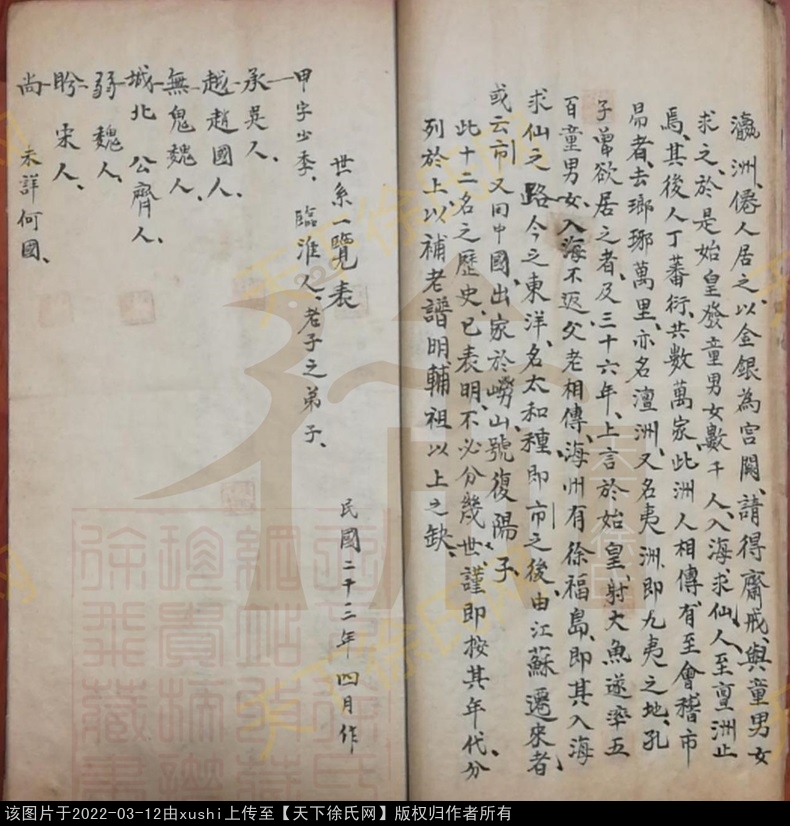 瀛洲、僊人居之、以金銀為宮闕、請得齋戒、與童男女
求之、於是始皇發童男女數千人、入海求仙人、至亶洲止
焉、其後人丁蕃衍、共數萬家、此洲人相傳、有至會稽市
易者、去瑯琊萬里、亦名澶洲、又名夷洲、即九夷之地、孔
子曾欲居之者、及三十六年、上言於始皇、射大魚遂率五
百童男女、入海不返、父老相傳、海州有徐福島、即其入海
求仙之路、今之東洋、名太和種、即市之後、由江蘇遷來者、
或云、市又回中國、出家於嶗山、號復陽子、
此十二名之歷史、已表明、不必分幾世、謹即按其年代、分
列於上、以補老譜明輔祖以上之缺、
民國二十三年四月作
世系一覽表
甲字少季、臨淮人、老子之弟子、
承吳人、
越趙國人、
無鬼魏人、
城北公齊人、
弱魏人、
盻宋人、
尚未詳何國、
天下徐氏网
该图片于2022-03-12由xushi上传至【天下徐氏网】版权归作者所有